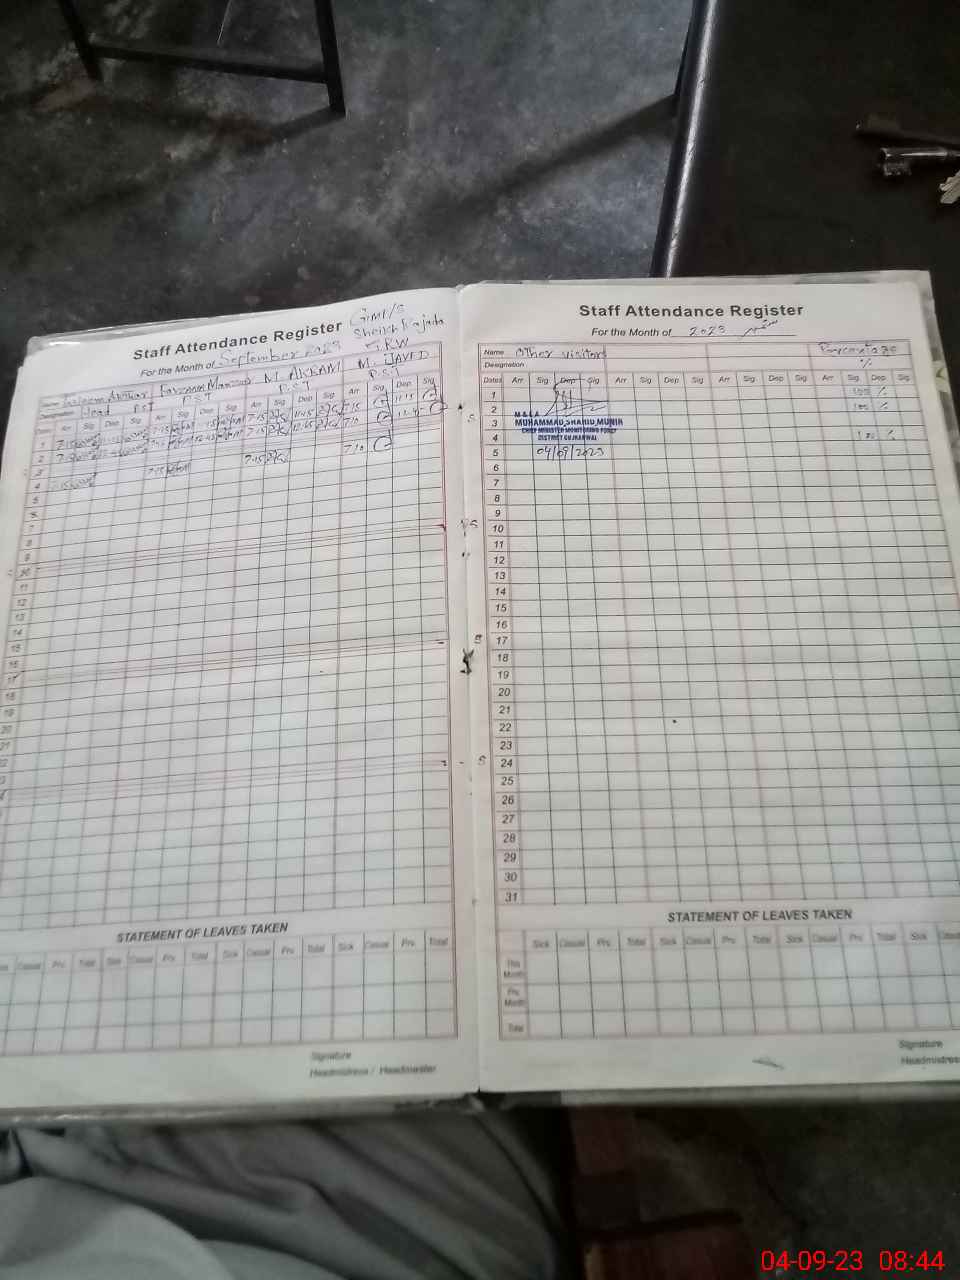 Staff Attendance Register
GMP/S
Sheikh Rajada
GRW
For the Month of September 2023
Name Saleem Akhtar M. AKRAM M. JAVED
Designation Head PST PST PST P.S.T
Dates Arr Sig Dep Sig Arr Sig Dep Sig Arr Sig Dep Sig Arr Sig Dep Sig
1 7-15 7-15 7-15 11-15
2 7-15 7-15 7-10
3
4 7-15 7-15 7-15 7-10
5
6
7
8
9
10
11
12
13
14
15
16
17
18
19
20
21
22
23
STATEMENT OF LEAVES TAKEN
Casual Prv. Total Sick Casual Prv. Total Sick Casual Prv. Total Sick Casual Prv. Total
Signature
Headmistress / Headmaster
Staff Attendance Register
For the Month of 2023 ستمبر
Name Other visitors Percentage
Designation %
Dates Arr Sig Dep Sig Arr Sig Dep Sig Arr Sig Dep Sig Arr Sig Dep Sig
1 100 %
2 100 %
M & E A
3 MUHAMMAD SHAHID MUNIR
CHIEF MINISTER MONITORING FORCE
4 DISTRICT GUJRANWALA 100 %
5 04/09/2023
6
7
8
9
10
11
12
13
14
15
16
17
18
19
20
21
22
23
24
25
26
27
28
29
30
31
STATEMENT OF LEAVES TAKEN
Sick Casual Prv. Total Sick Casual Prv. Total Sick Casual Prv. Total Sick
This Month
Prv. Month
Total
Signature
Headmistress
04-09-23 08:44